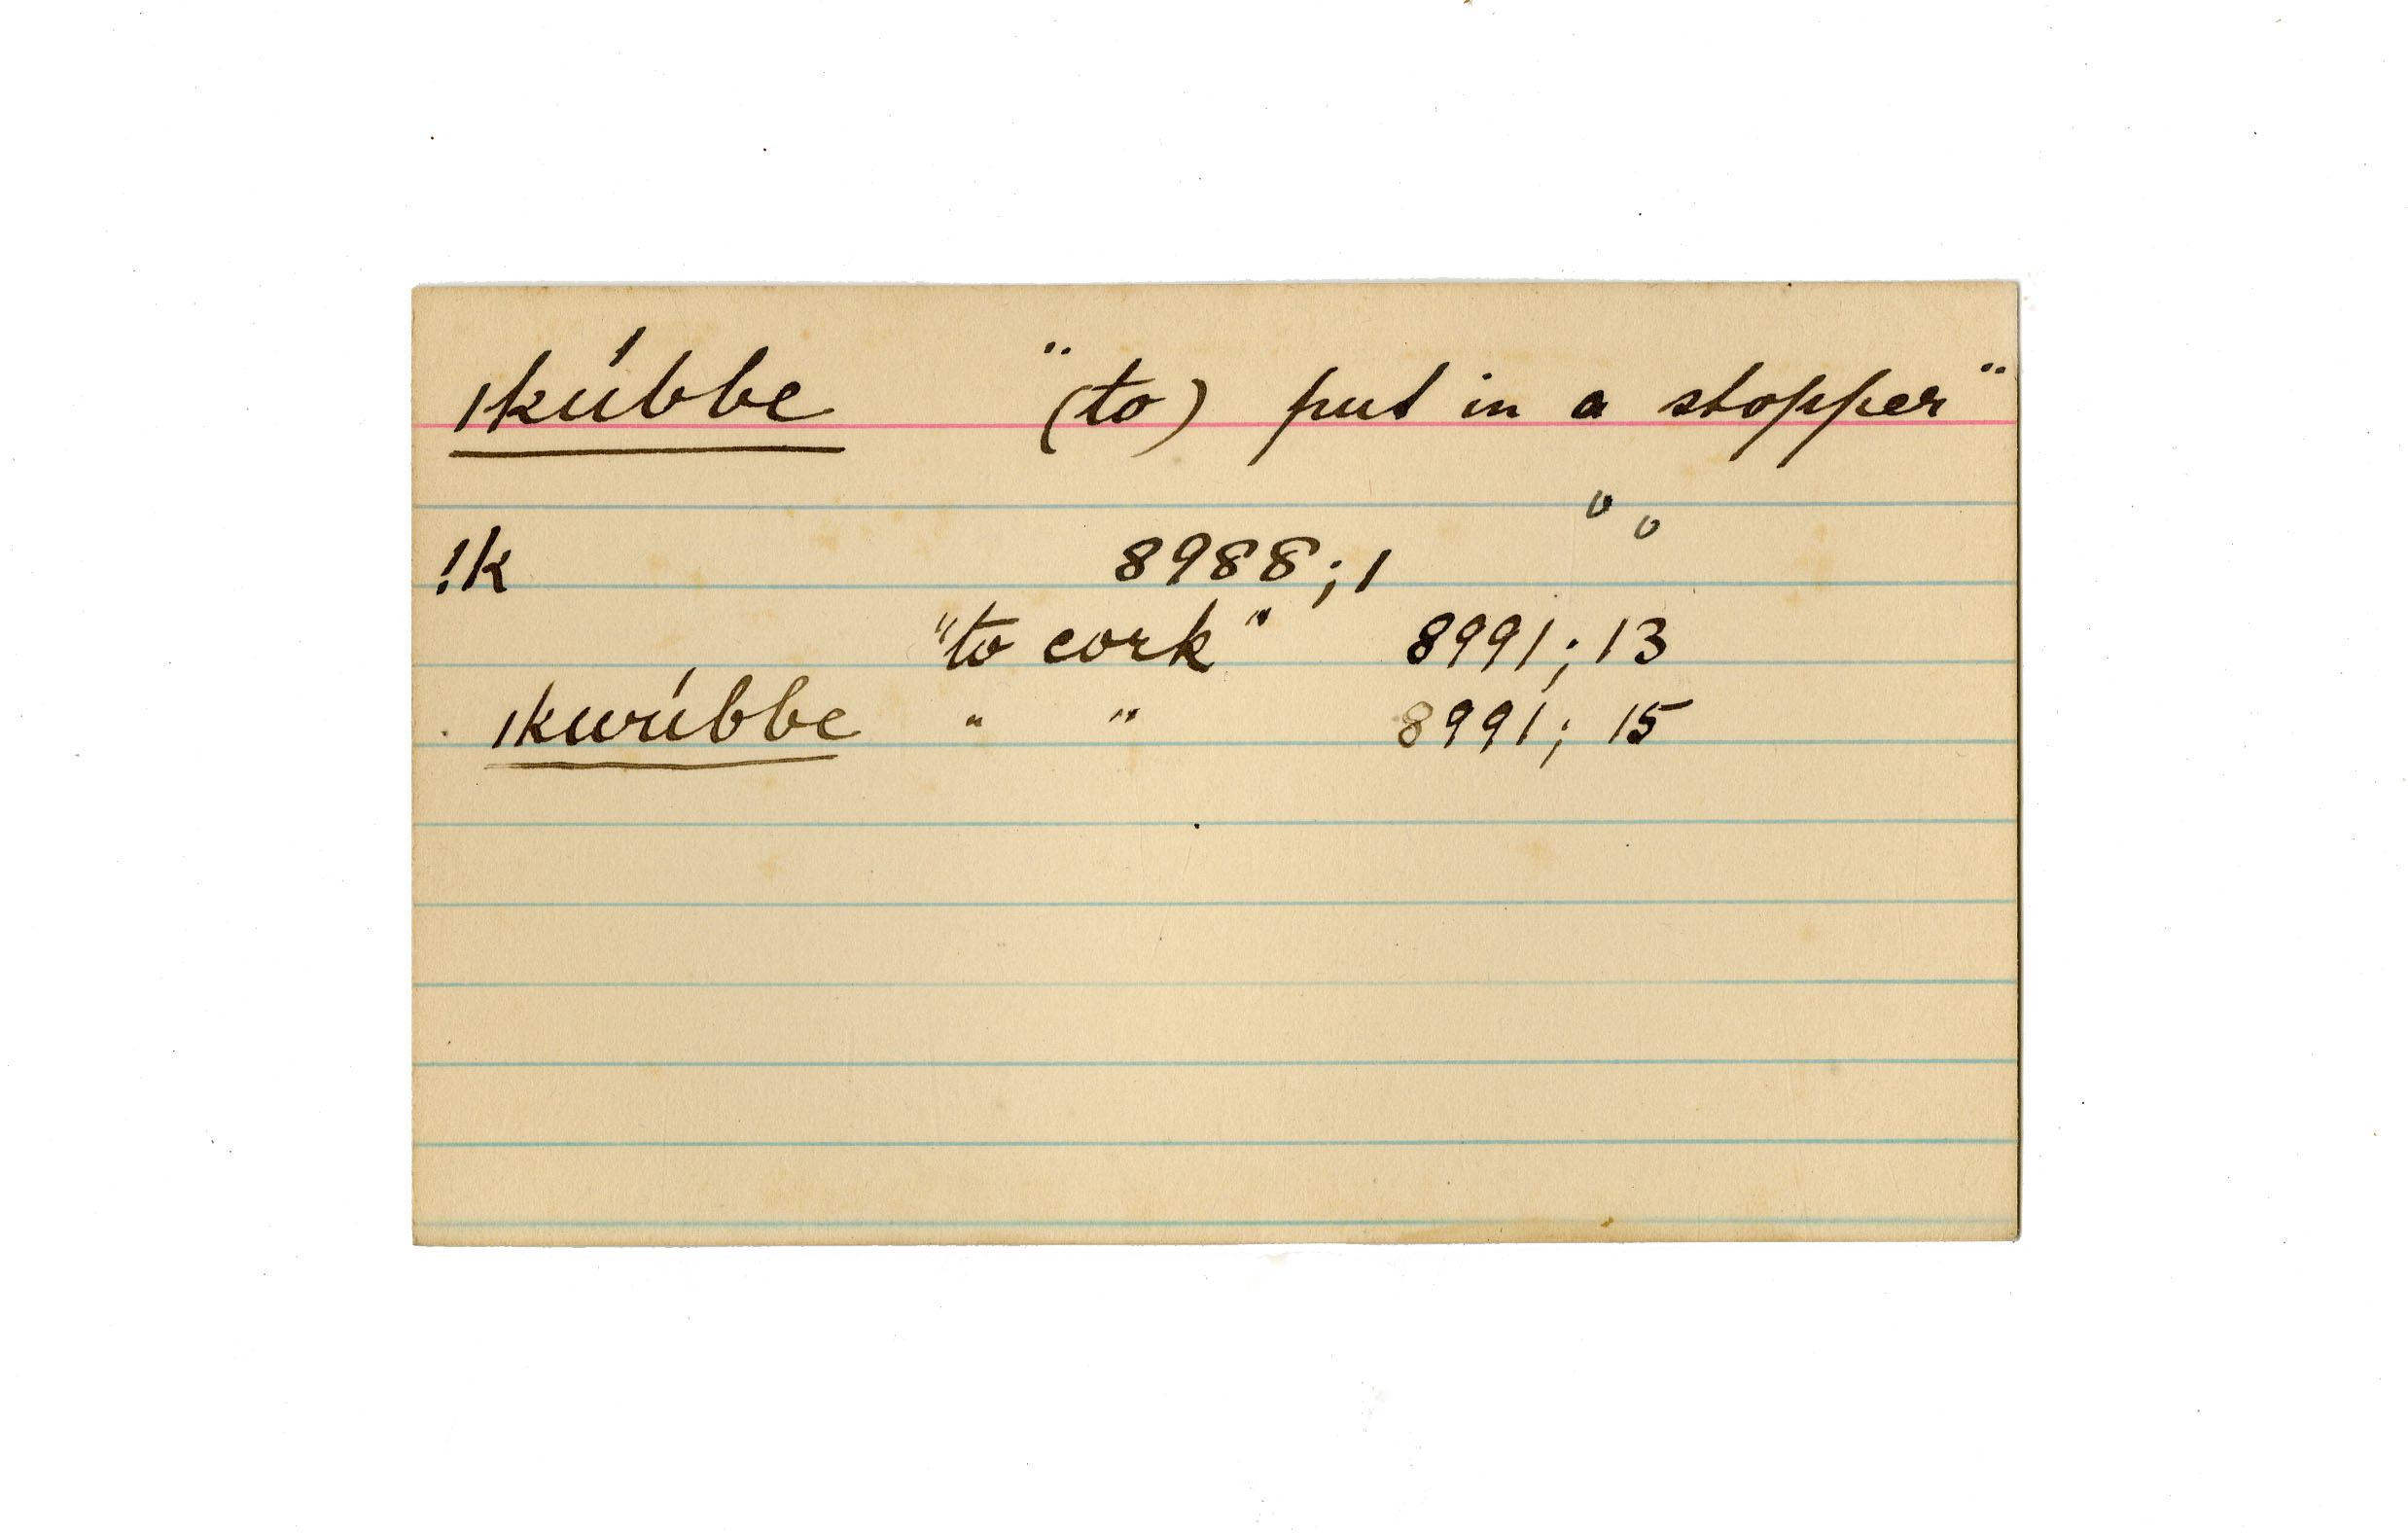 ǀkúbbe "(to) put in a stopper"
!k 8988; 1
"to cork" 8991; 13
ǀkwúbbe " " 8991; 15